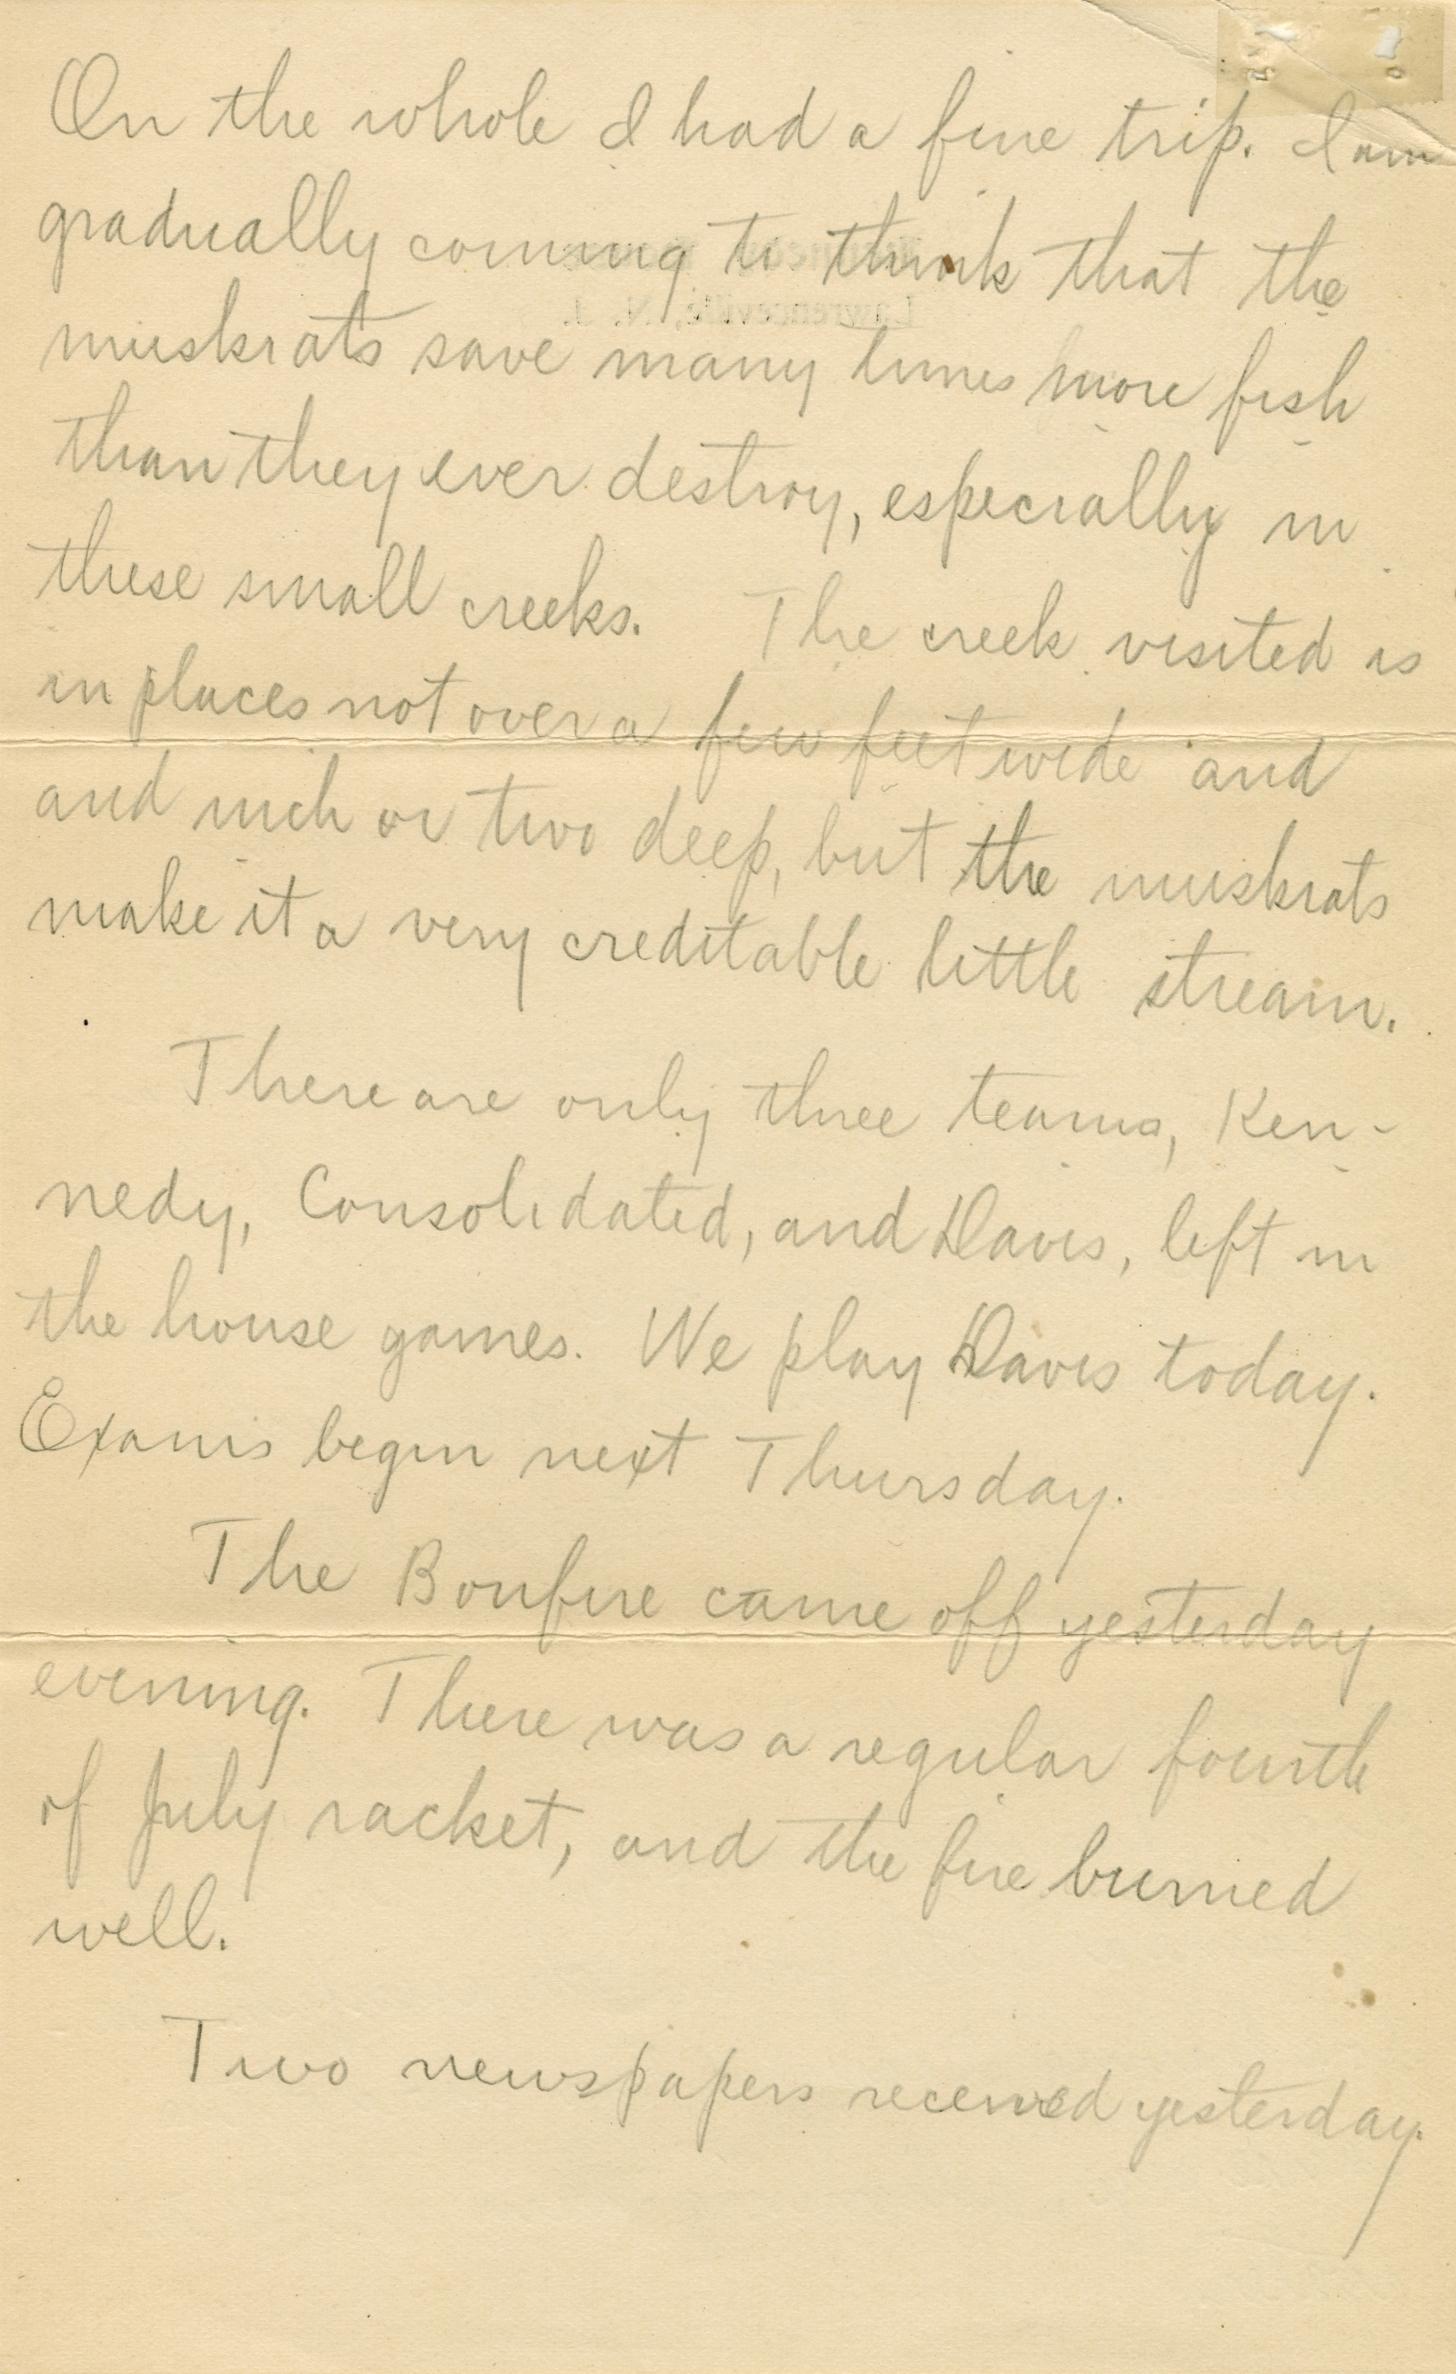 On the whole I had a fine trip. I am
gradually coming to think that the
muskrats save many times more fish
than they ever destroy, especially in
these small creeks. The creek visited is
in places not over a few feet wide and
and inch or two deep, but the muskrats
make it a very creditable little stream.
There are only three teams, Ken-
nedy, Consolidated, and Davis, left in
the house games. We play Davis today.
Exams begin next Thursday.
The Bonfire came off yesterday
evening. There was a regular fourth
of July racket, and the fire burned
well.
Two newspapers received yesterday.
Lawrenceville, N. J.